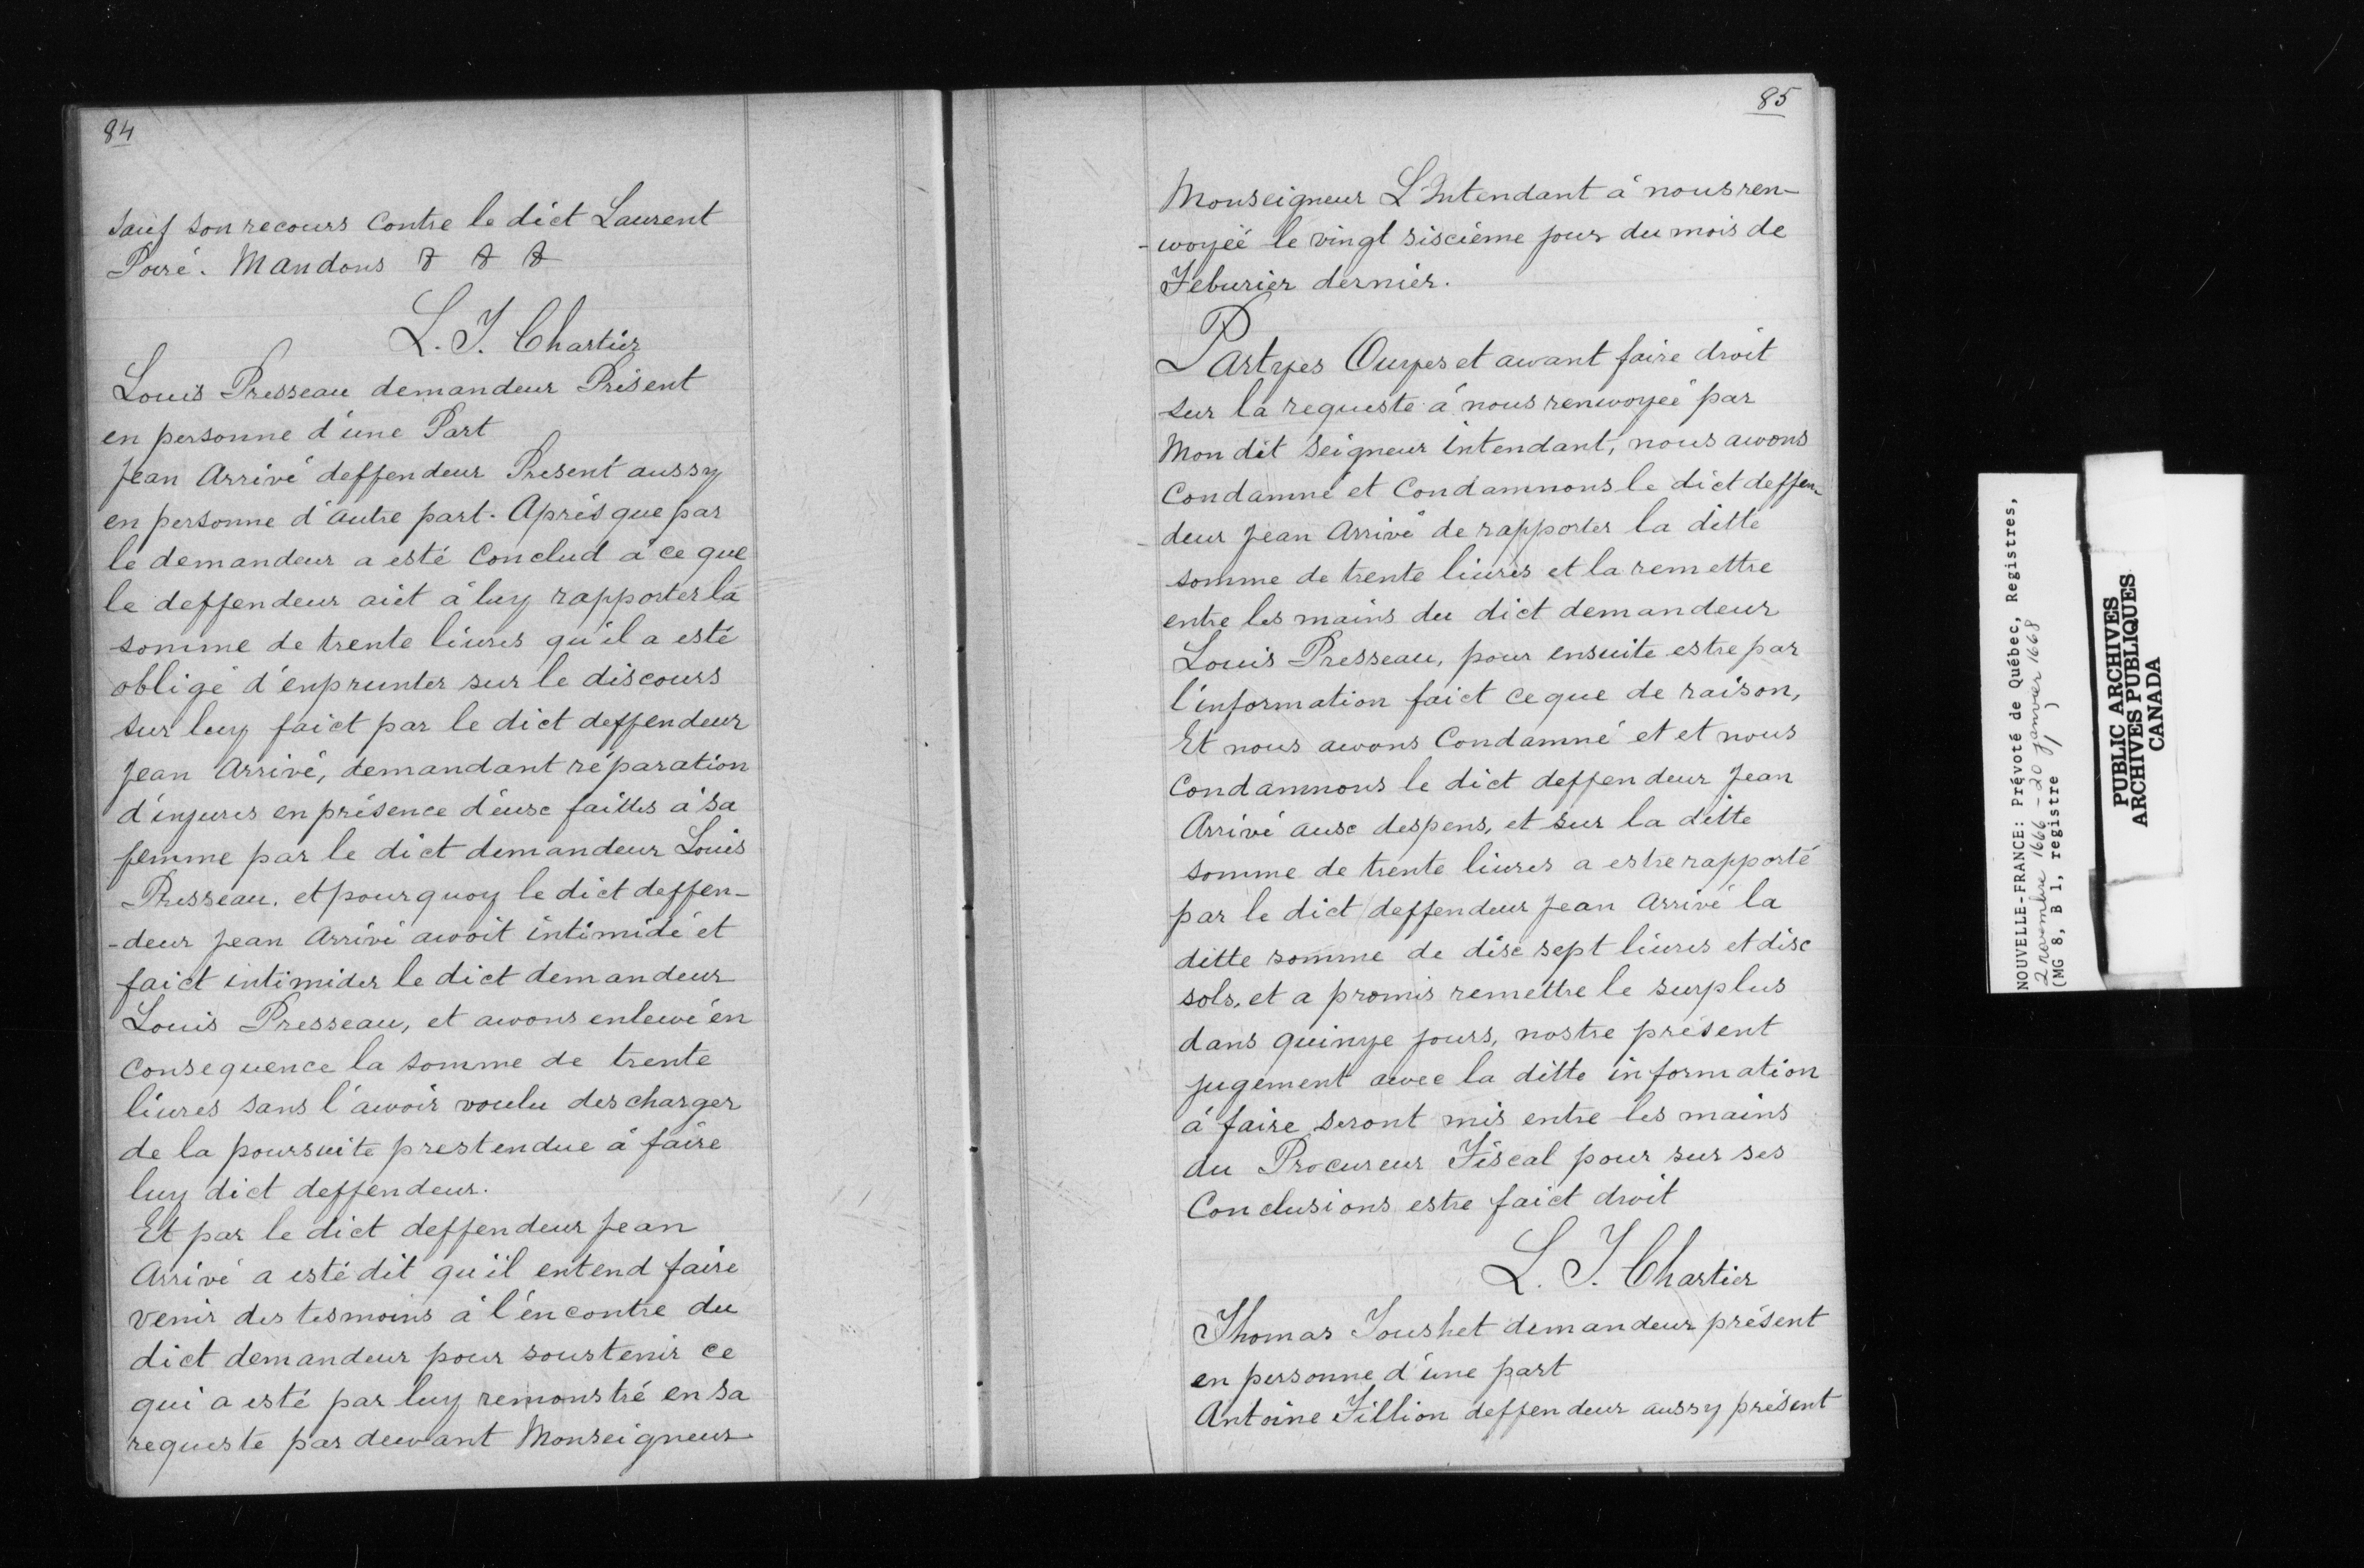 84
sauf son recours Contre le dict Laurent
Poiré. Mandons & & &
L. T. Chartier
Louis Presseau demandeur Présent
en personne d'une Part
Jean Arrivé deffendeur Present aussy
en personne d'autre part. Après que par
le demandeur a esté Conclud à ce que
le deffendeur aiet à luy rapporter la
somme de trente liures qu'il a esté
obligé d'enprunter sur le discours
sur luy faict par le dict deffendeur
Jean Arrivé, demandant réparation
d'injures en présence d'euse faittes à sa
femme par le dict demandeur Louis
Presseau. et pourquoy le dict deffen-
-deur Jean Arrivé avoit intimidé et
faict intimider le dict demandeur
Louis Presseau, et awons enlewé en
consequence la somme de trente
liures sans l'awoir voulu descharger
de la poursuite prestendue à faire
luy dict deffendeur.
Et par le dict deffendeur Jean
Arrivé a esté dit qu'il entend faire
venir des tesmoins à l'encontre du
dict demandeur pour soustenir ce
qui a esté par luy remonstré en sa
requeste par dewant Monseigneur
85
Monseigneur L'Intendant à nous ren-
-woyéé le vingt siscième jour du mois de
Feburier dernier.
Partyes Ouyes et awant faire droit
sur la requeste à nous renwoyéé par
Mon dit Seigneur intendant, nous awons
Condamné et Condamnons le dict deffen-
-deur Jean Arrivé de rapporter la ditte
somme de trente liures et la remettre
entre les mains du dict demandeur
Louis Presseau, pour ensuite estre par
l'information faict ce que de raison,
Et nous awons Condamné et et nous
Condamnons le dict deffendeur Jean
Arrivé ause despens, et sur la ditte
somme de trente liures a estre rapporté
par le dict deffendeur Jean Arrivé la
ditte somme de disc sept liures et disc
sols, et a promis remettre le surplus
dans quinye jours, nostre présent
jugement awec la ditte information
à faire seront mis entre les mains
du Procureur Fiscal pour sur ses
Conclusions estre faict droit
L. T. Chartier
Thomas Toushet demandeur présent
en personne d'une part
Antoine Fillion deffendeur aussy présent
NOUVELLE-FRANCE: Prévoté de Québec, Registres,
2 novembre 1666 - 20 janvier 1668
(MG 8, B 1, registre 1)
PUBLIC ARCHIVES
ARCHIVES PUBLIQUES
CANADA